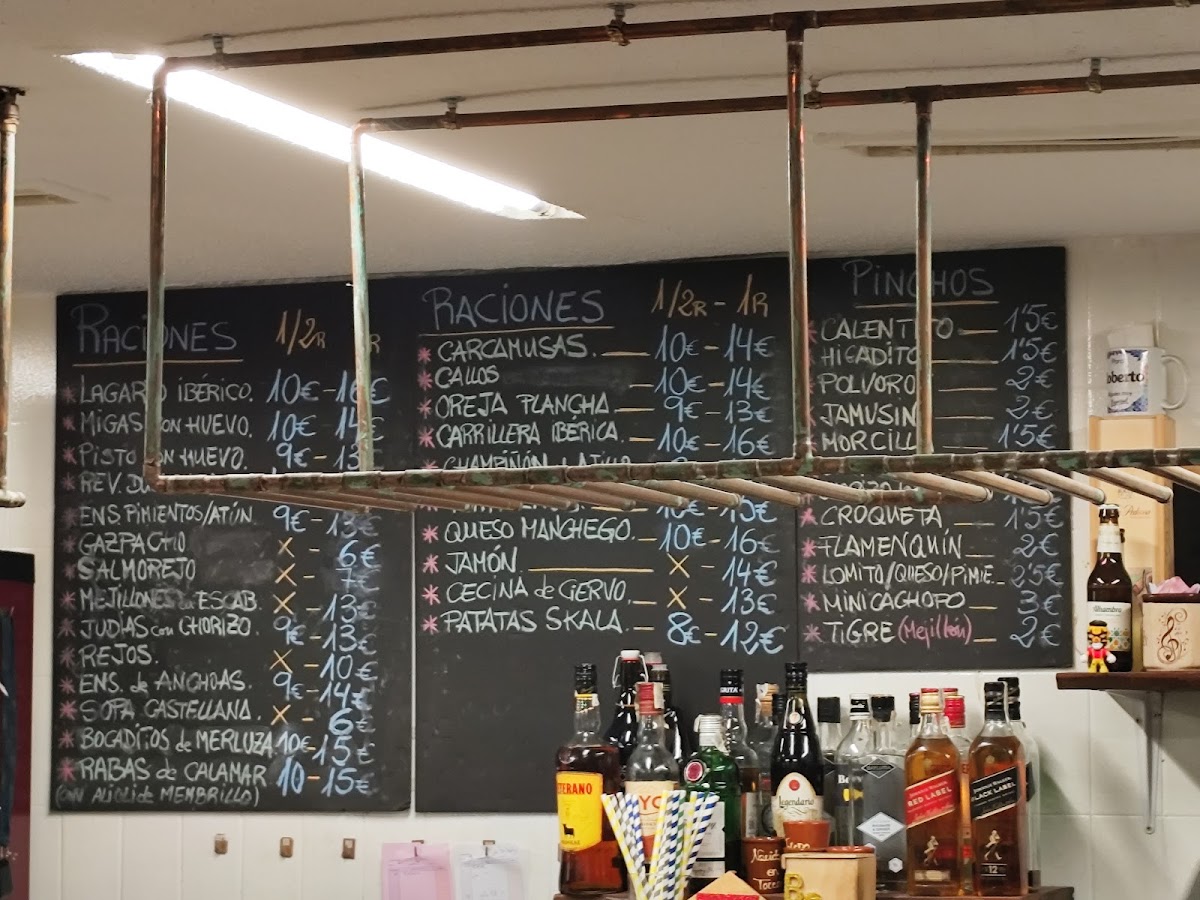 RACIONES 1/2R R
LAGARTO IBÉRICO. 10€-16€
MIGAS CON HUEVO. 10€ 14€
PISTO CON HUEVO. 9€-13€
REV.
ENS. PIMIENTOS/ATÚN 9€-13€
GAZPACHO X - 6€
SALMOREJO X - 7€
MEJILLONES EN ESCAB. X - 13€
JUDÍAS CON CHORIZO. 9€-13€
REJOS. X - 10€
ENS. de ANCHOAS. 9€-14€
SOPA CASTELLANA. X - 6€
BOCADITOS de MERLUZA 10€-15€
RABAS de CALAMAR 10-15€
(CON ALIOLI de MEMBRILLO)
RACIONES 1/2R - 1R
CARCAMUSAS. 10€-14€
CALLOS 10€-14€
OREJA PLANCHA 9€-13€
CARRILLERA IBÉRICA. 10€-16€
CHAMPIÑÓN AJILLO
QUESO MANCHEGO. 10€-16€
JAMÓN. X - 14€
CECINA de CIERVO. X - 12€
PATATAS SKALA. 8€-12€
PINCHOS
CALENTITO 1'5€
HIGADITO 1'5€
POLVORO 2€
JAMUSIN 2€
MORCILL 1'5€
CROQUETA, 1'5€
FLAMENQUÍN 2€
LOMITO/QUESO/PIMIE.. 2'5€
MINICACHOPO 3€
TIGRE (Mejillón) 2€
oberto
Alhambra
TERANO
Legendario
RED LABEL
BLACK LABEL
12